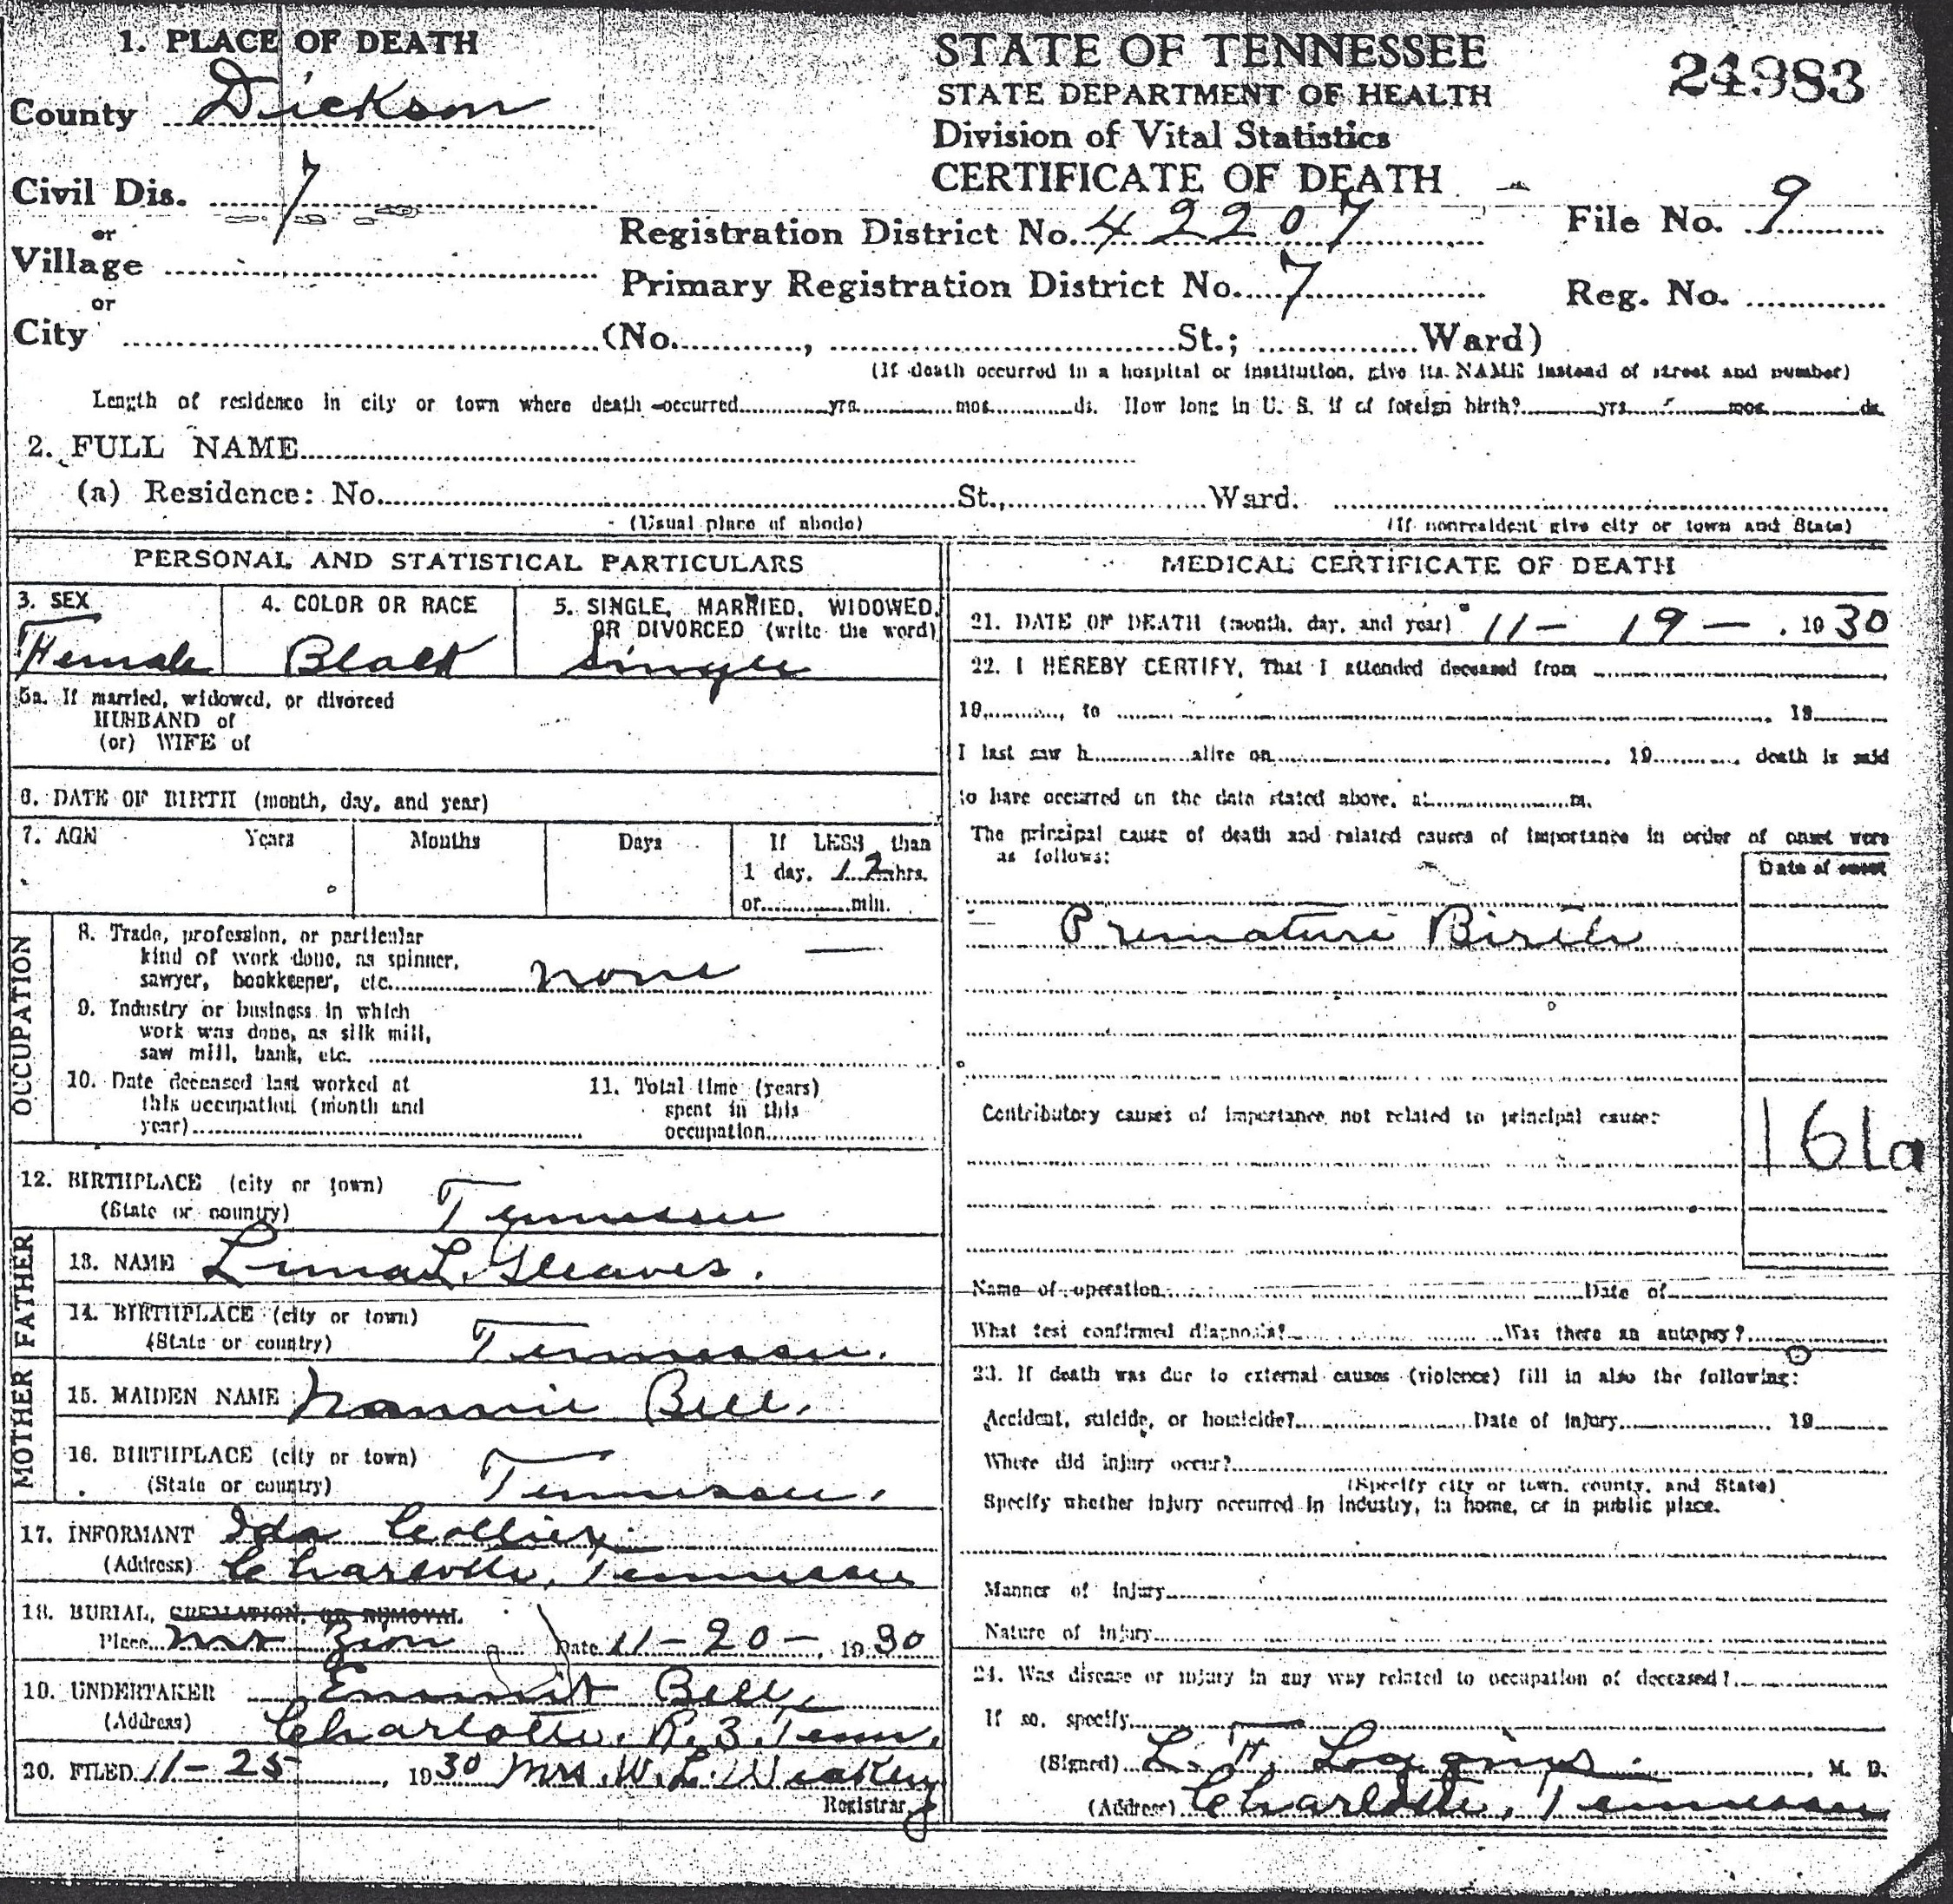 1. PLACE OF DEATH
County Dickson
Civil Dis. 7
or
Village
or
City (No. , St.; Ward)
STATE OF TENNESSEE
STATE DEPARTMENT OF HEALTH
Division of Vital Statistics
CERTIFICATE OF DEATH
24983
Registration District No. 42207 File No. 9
Primary Registration District No. 7 Reg. No.
(If death occurred in a hospital or institution, give its NAME instead of street and number)
Length of residence in city or town where death occurred yrs. mos. ds. How long in U. S. if of foreign birth? yrs. mos. ds.
2. FULL NAME
(a) Residence: No. St., Ward.
(Usual place of abode) (If nonresident give city or town and State)
PERSONAL AND STATISTICAL PARTICULARS
3. SEX
Female
4. COLOR OR RACE
Black
5. SINGLE, MARRIED, WIDOWED,
OR DIVORCED (write the word)
Single
5a. If married, widowed, or divorced
HUSBAND of
(or) WIFE of
6. DATE OF BIRTH (month, day, and year)
7. AGE Years Months Days If LESS than
1 day, 12 hrs.
or min.
OCCUPATION
8. Trade, profession, or particular
kind of work done, as spinner,
sawyer, bookkeeper, etc. none
9. Industry or business in which
work was done, as silk mill,
saw mill, bank, etc.
10. Date deceased last worked at
this occupation (month and
year)
11. Total time (years)
spent in this
occupation
12. BIRTHPLACE (city or town)
(State or country) Tennessee
FATHER
13. NAME L. Gleaves.
14. BIRTHPLACE (city or town)
(State or country) Tennessee.
MOTHER
15. MAIDEN NAME Nannie Bell.
16. BIRTHPLACE (city or town)
(State or country) Tennessee.
17. INFORMANT Ida Collier
(Address) Charlotte, Tennessee
18. BURIAL, CREMATION, OR REMOVAL
Place Mt Zion Date 11-20-, 1930
19. UNDERTAKER Emmit Bell,
(Address) Charlotte, R. 3. Tenn.
20. FILED 11-25, 1930 Mrs. W. L. Weakley
Registrar
MEDICAL CERTIFICATE OF DEATH
21. DATE OF DEATH (month, day, and year) 11- 19 -, 1930
22. I HEREBY CERTIFY, That I attended deceased from
19 , to , 19
I last saw h alive on , 19 , death is said
to have occurred on the date stated above, at m.
The principal cause of death and related causes of importance in order of onset were
as follows:
Date of onset
Premature Birth
Contributory causes of importance not related to principal cause:
161a
Name of operation Date of
What test confirmed diagnosis? Was there an autopsy?
23. If death was due to external causes (violence) fill in also the following:
Accident, suicide, or homicide? Date of injury , 19
Where did injury occur?
(Specify city or town, county, and State)
Specify whether injury occurred in industry, in home, or in public place.
Manner of injury
Nature of injury
24. Was disease or injury in any way related to occupation of deceased?
If so, specify
(Signed) L. F. Loggins, M. D.
(Address) Charlotte, Tennessee